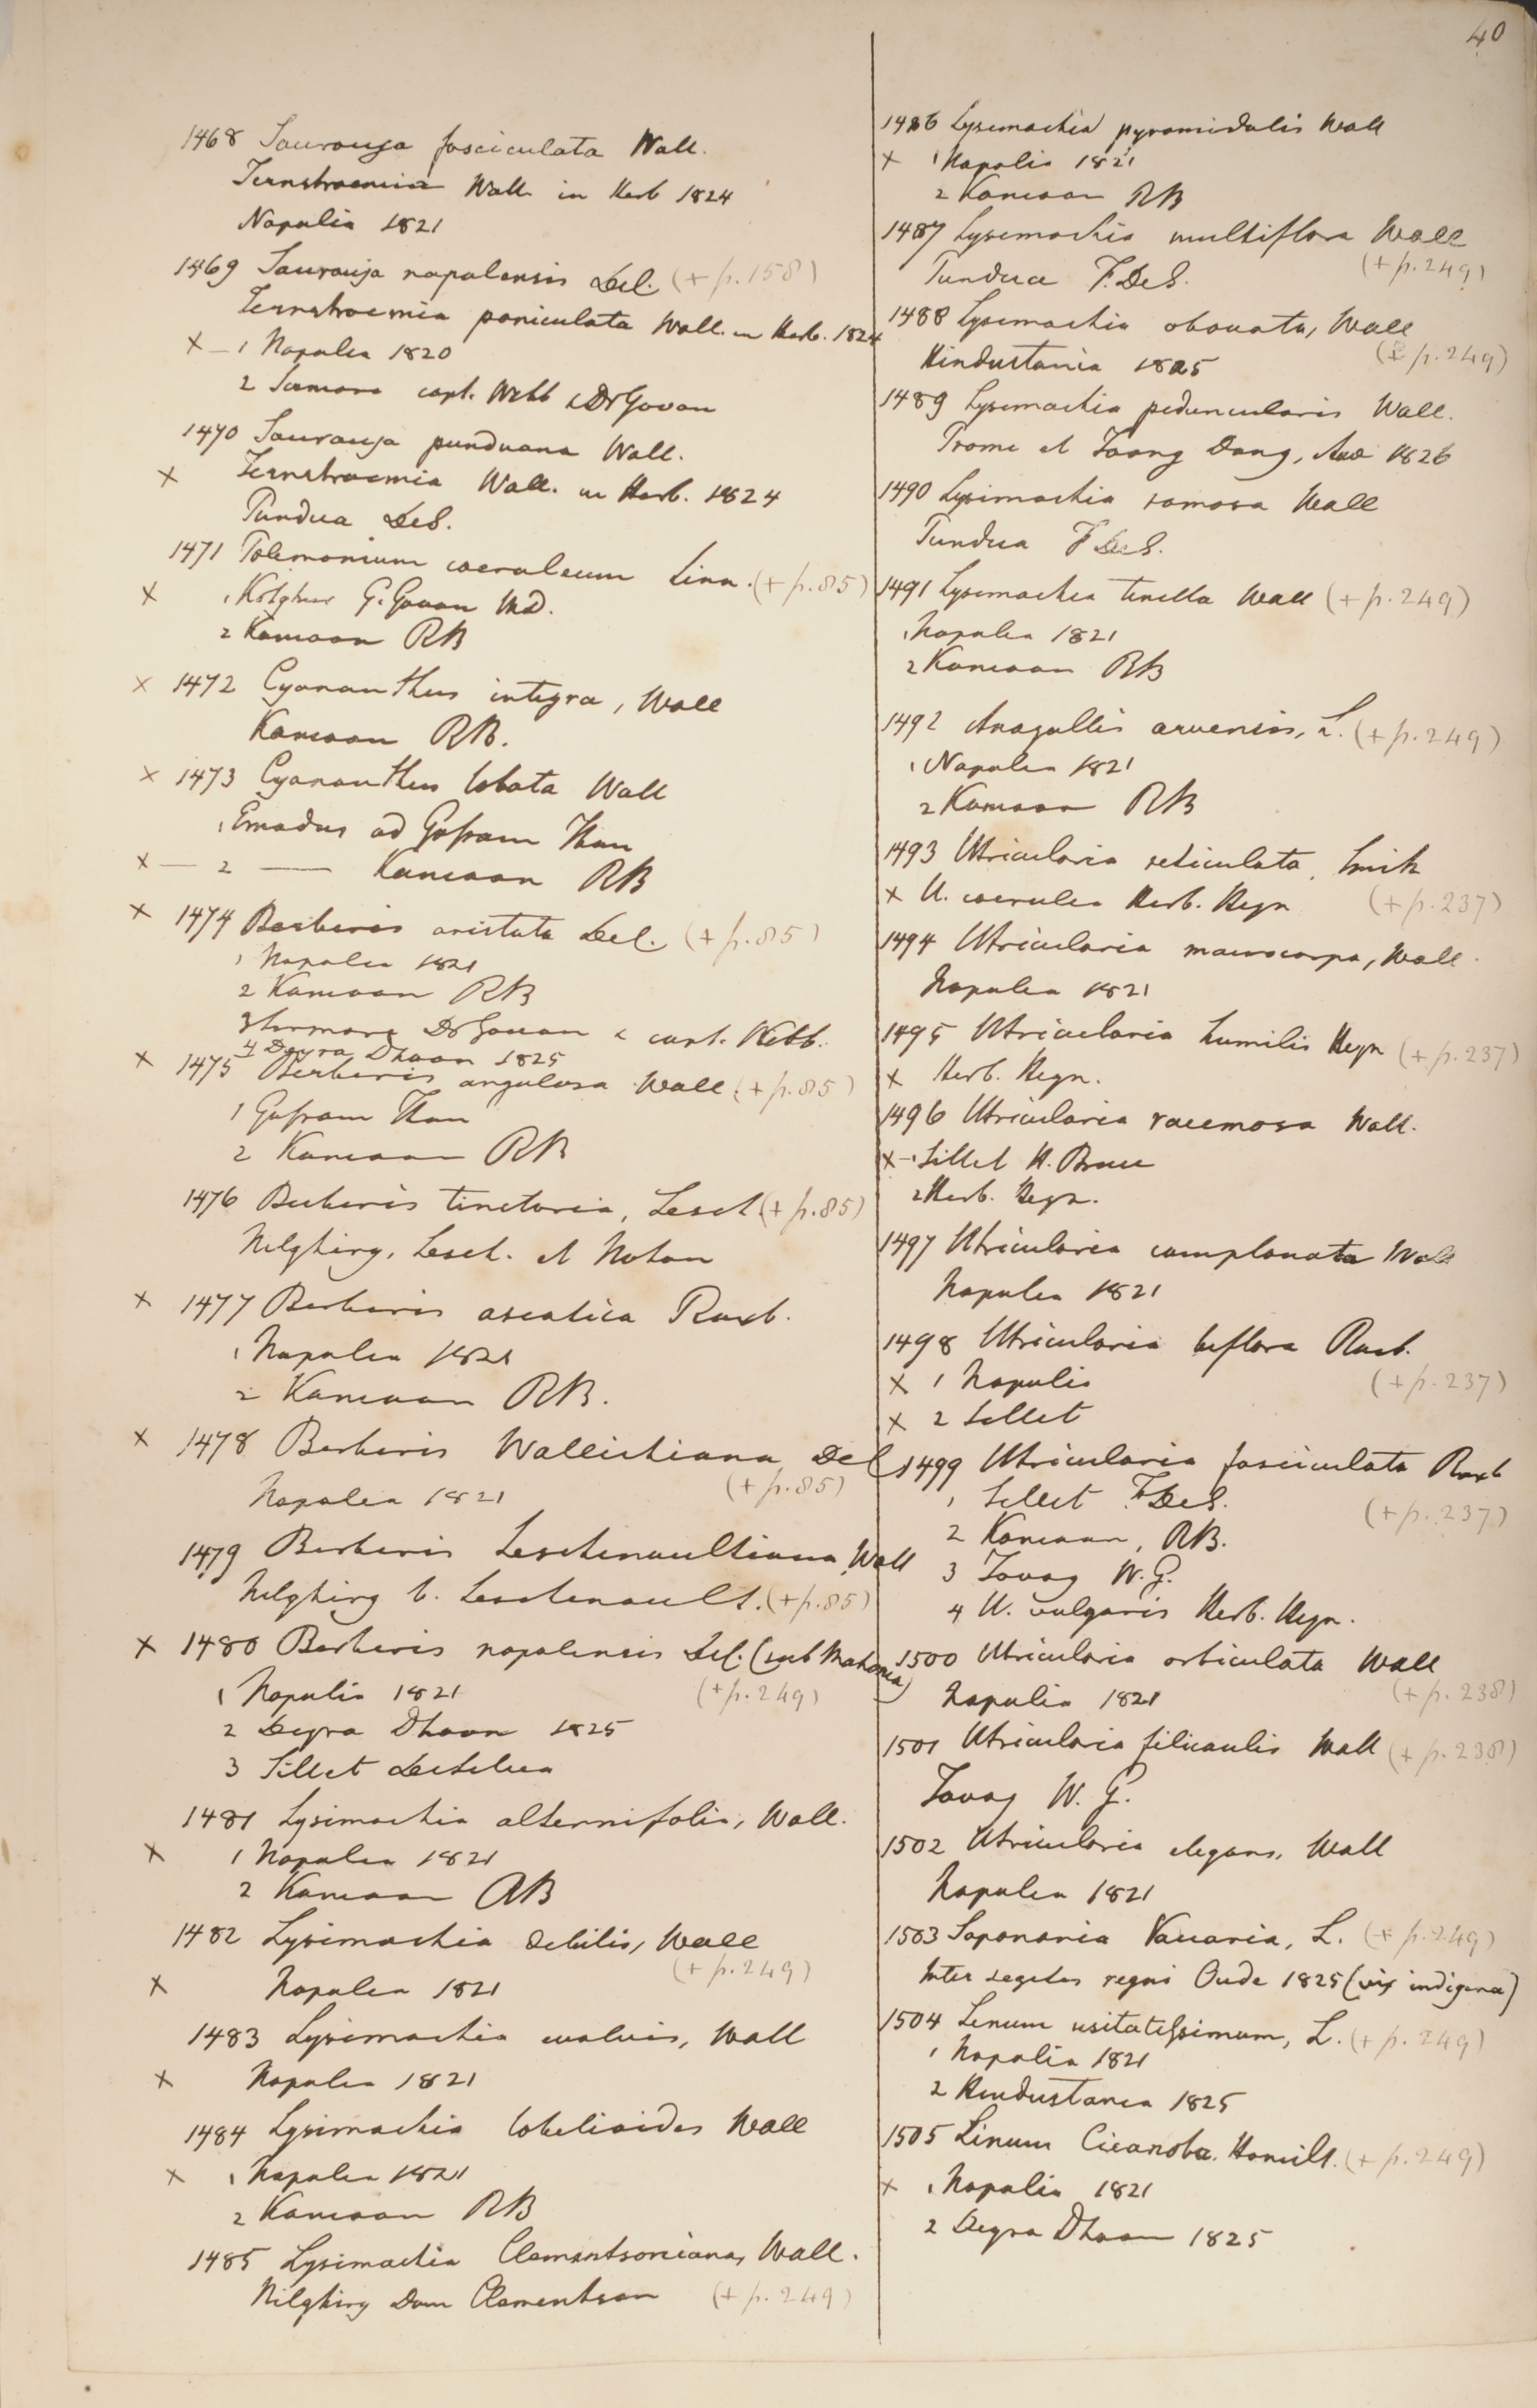 40
1468 Saurauja fasciculata Wall.
Ternstroemia Wall. in Herb 1824
Napalia 1821
1469 Saurauja napalensis Del. (+ p. 158)
Ternstroemia paniculata Wall. in Herb. 1824
x — 1 Napalia 1820
2 Sirmore capt. Webb & Dr Govan
1470 Saurauja punduana Wall.
x Ternstroemia Wall. in Herb. 1824
Pundua DeS.
1471 Polemonium coeruleum Linn. (+ p. 85)
x 1 G. Govan MD.
2 Kamaon RB
x 1472 Cyananthus integra, Wall
Kamaon RB.
x 1473 Cyananthus lobata Wall
1 Emodus ad Gosam Than
x — 2 — Kamaon RB
x 1474 Berberis aristata Del. (+ p. 85)
1 Napalia 1821
2 Kamaon RB
3 Sirmore Dr Govan & capt. Webb.
4 Deyra Dhoon 1825
x 1475 Berberis angulosa Wall. (+ p. 85)
1 Gosam Than
2 Kamaon RB
1476 Berberis tinctoria, Lesch (+ p. 85)
Nilghiry, Lesch. et Noton
x 1477 Berberis asiatica Roxb.
1 Napalia 1821
2 Kamaon RB.
x 1478 Berberis Wallichiana Del
(+ p. 85)
Napalia 1821
1479 Berberis Leschenaultiana, Wall
Nilghiry b. Leschenault. (+ p. 85)
x 1480 Berberis napalensis Del. (sub Mahonia)
1 Napalia 1821 (+ p. 249)
2 Deyra Dhoon 1825
3 Sillet DeSilva
1481 Lysimachia alternifolia, Wall.
x 1 Napalia 1821
2 Kamaon RB
1482 Lysimachia debilis, Wall
(+ p. 249)
x Napalia 1821
1483 Lysimachia evalvis, Wall
x Napalia 1821
1484 Lysimachia lobelioides Wall
x 1 Napalia 1821
2 Kamaon RB
1485 Lysimachia Clementsoniana, Wall.
Nilghiry Dom Clementson (+ p. 249)
1486 Lysimachia pyramidalis Wall
x 1 Napalia 1821
2 Kamaon RB
1487 Lysimachia multiflora Wall
(+ p. 249)
Pundua F. DeS.
1488 Lysimachia obovata, Wall
(+ p. 249)
Hindustania 1825
1489 Lysimachia peduncularis Wall.
Prome et Taong Dong, Ava 1826
1490 Lysimachia ramosa Wall
Pundua F DeS.
1491 Lysimachia tenella Wall (+ p. 249)
1 Napalia 1821
2 Kamaon RB
1492 Anagallis arvensis, L. (+ p. 249)
1 Napalia 1821
2 Kamaon RB
1493 Utricularia reticulata, Smith
x U. coerulea Herb. Heyn (+ p. 237)
1494 Utricularia macrocarpa, Wall.
Napalia 1821
1495 Utricularia humilis Heyn (+ p. 237)
x Herb. Heyn.
1496 Utricularia racemosa Wall.
x — 1 Sillet H. Bruce
2 Herb. Heyn.
1497 Utricularia complanata Wall
Napalia 1821
1498 Utricularia biflora Roxb.
x 1 Napalia (+ p. 237)
x 2 Sillet
1499 Utricularia fasciculata Roxb
1 Sillet F. DeS.
(+ p. 237)
2 Kamaon, RB.
3 Tavoy W. G.
4 U. vulgaris Herb. Heyn.
1500 Utricularia orbiculata Wall
Napalia 1821 (+ p. 238)
1501 Utricularia filicaulis Wall (+ p. 238)
Tavoy W. G.
1502 Utricularia elegans, Wall
Napalia 1821
1503 Saponaria Vaccaria, L. (+ p. 249)
Inter segetes regni Oude 1825 (vix indigena)
1504 Linum usitatissimum, L. (+ p. 249)
1 Napalia 1821
2 Hindustania 1825
1505 Linum Cicanoba. Hamilt. (+ p. 249)
x 1 Napalia 1821
2 Deyra Dhoon 1825